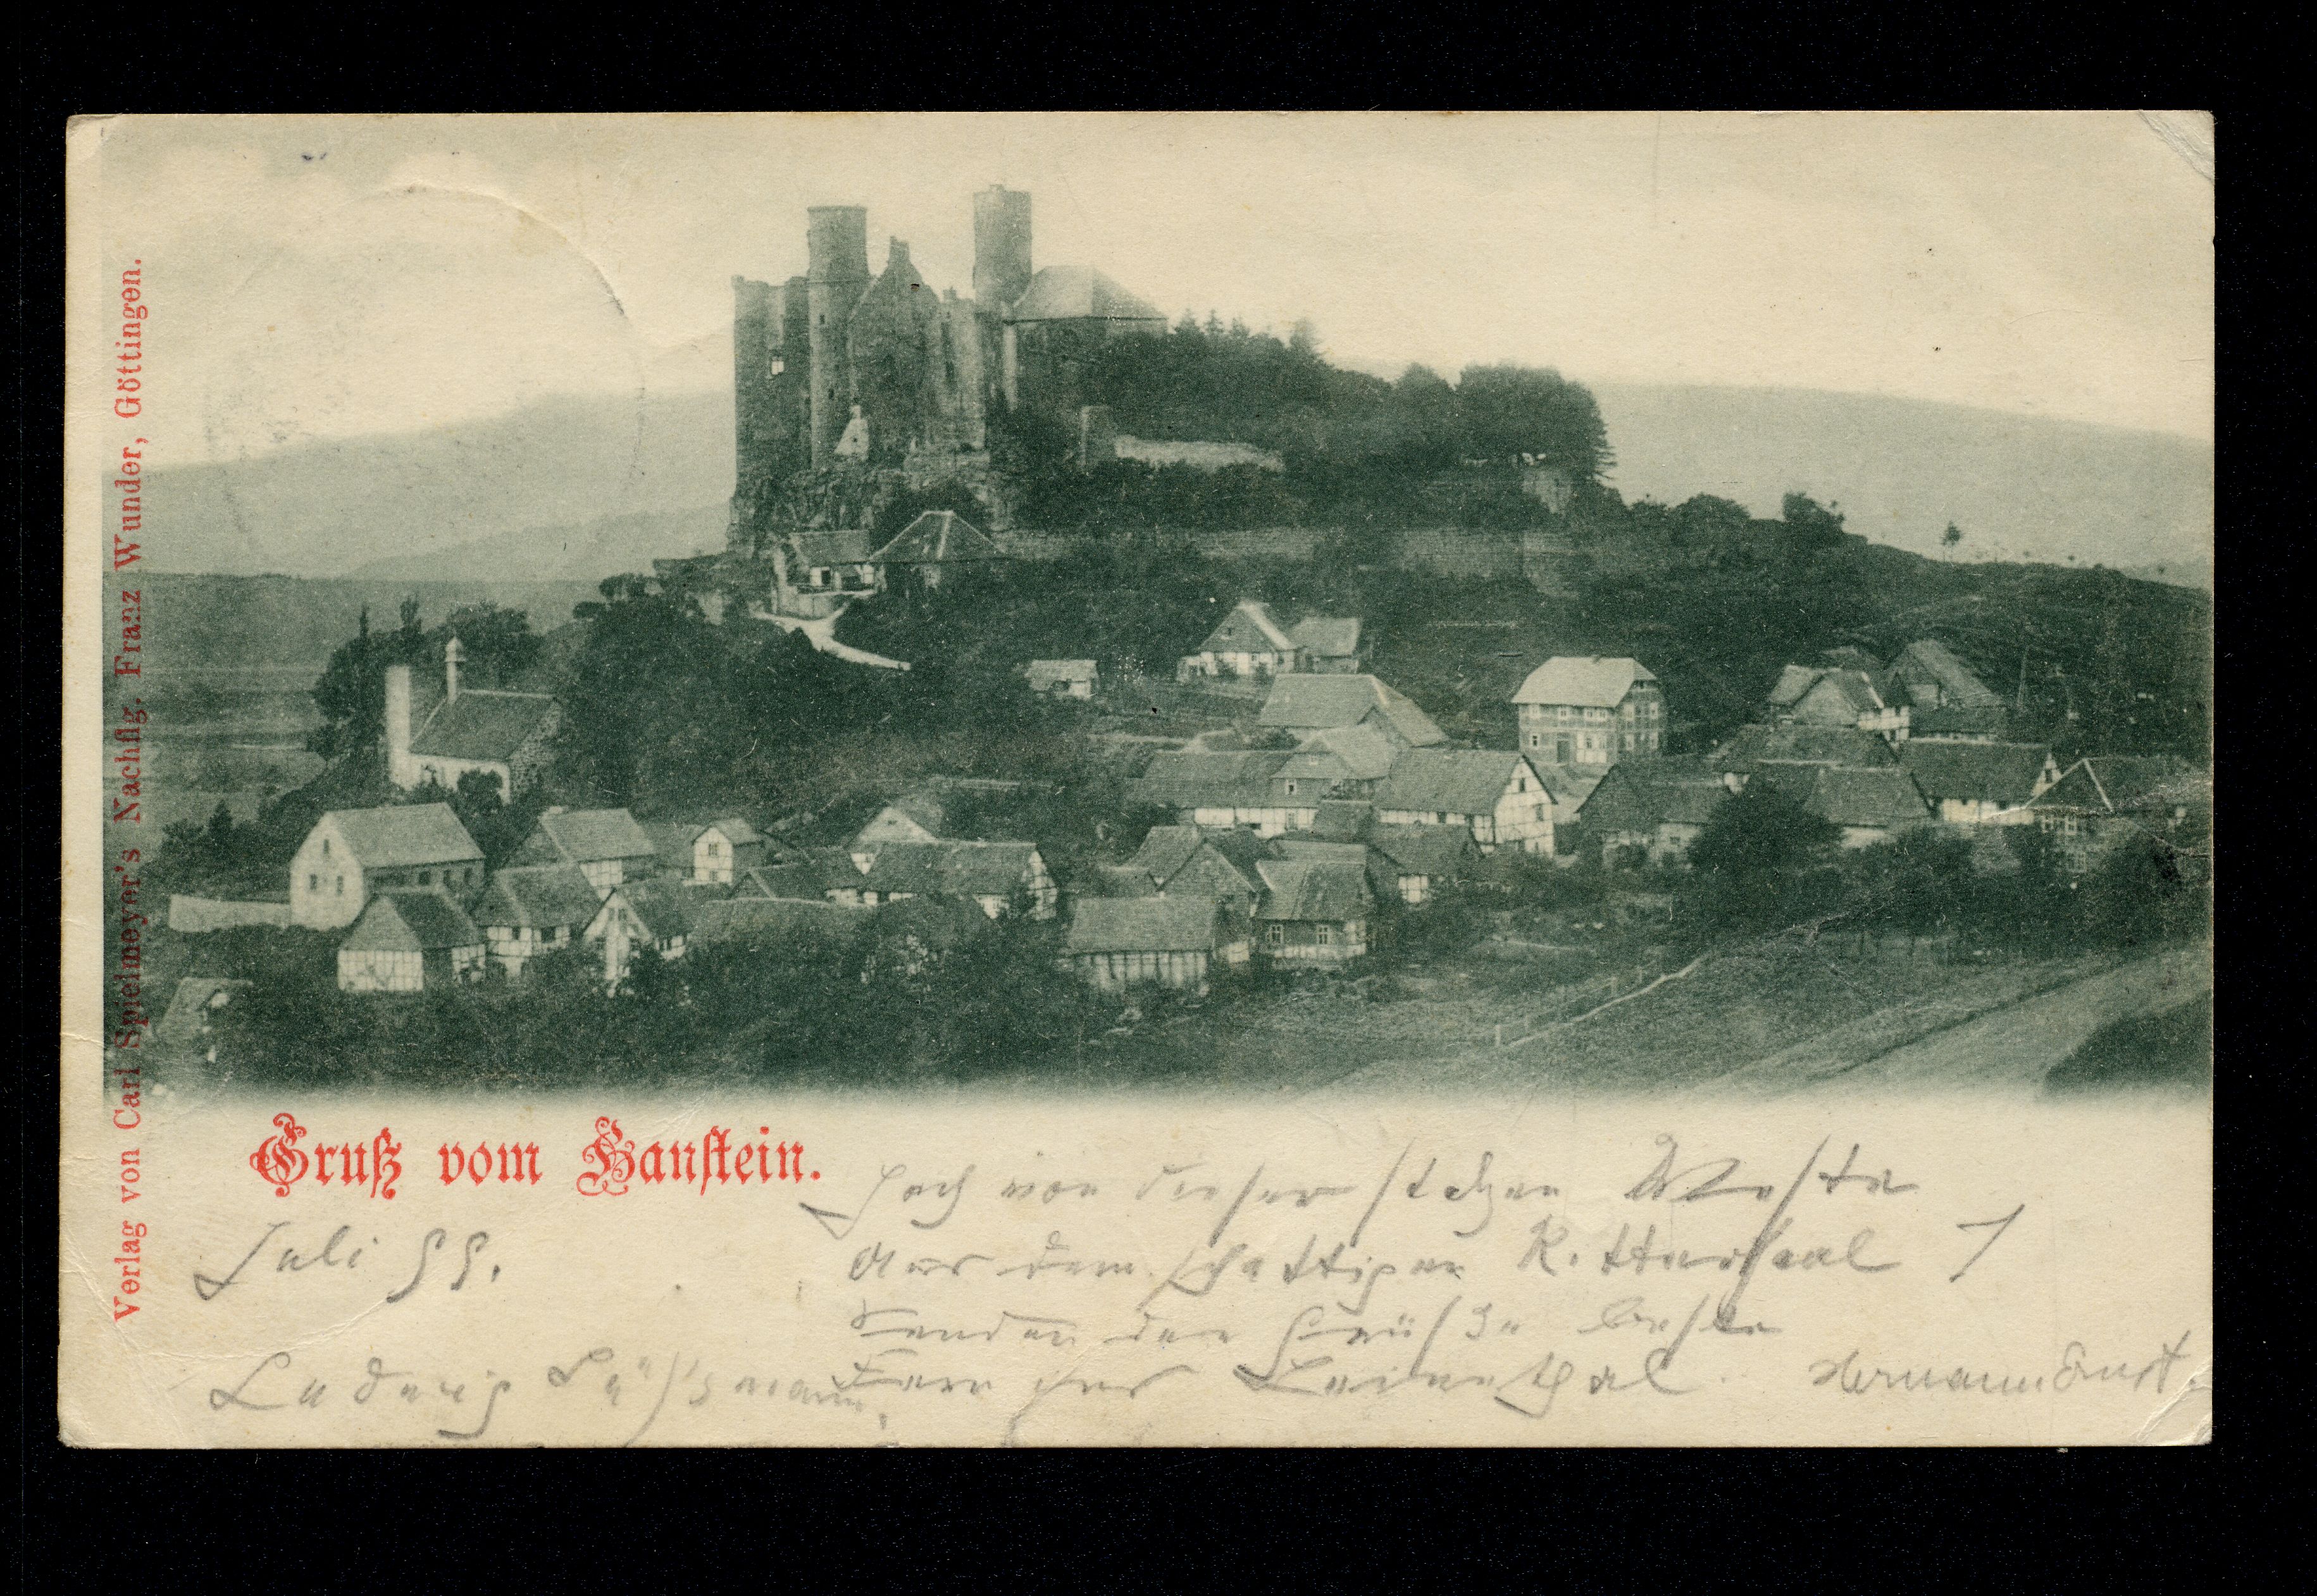 Verlag von Carl Spielmeyer's Nachflg. Franz Wunder, Göttingen.
Gruß vom Hanstein.
Juli 99.
Hoch von dieser stolzen Veste
Aus dem schattigen Rittersaal
Senden der Grüße beste
Ludwig
Hermann Ernst.